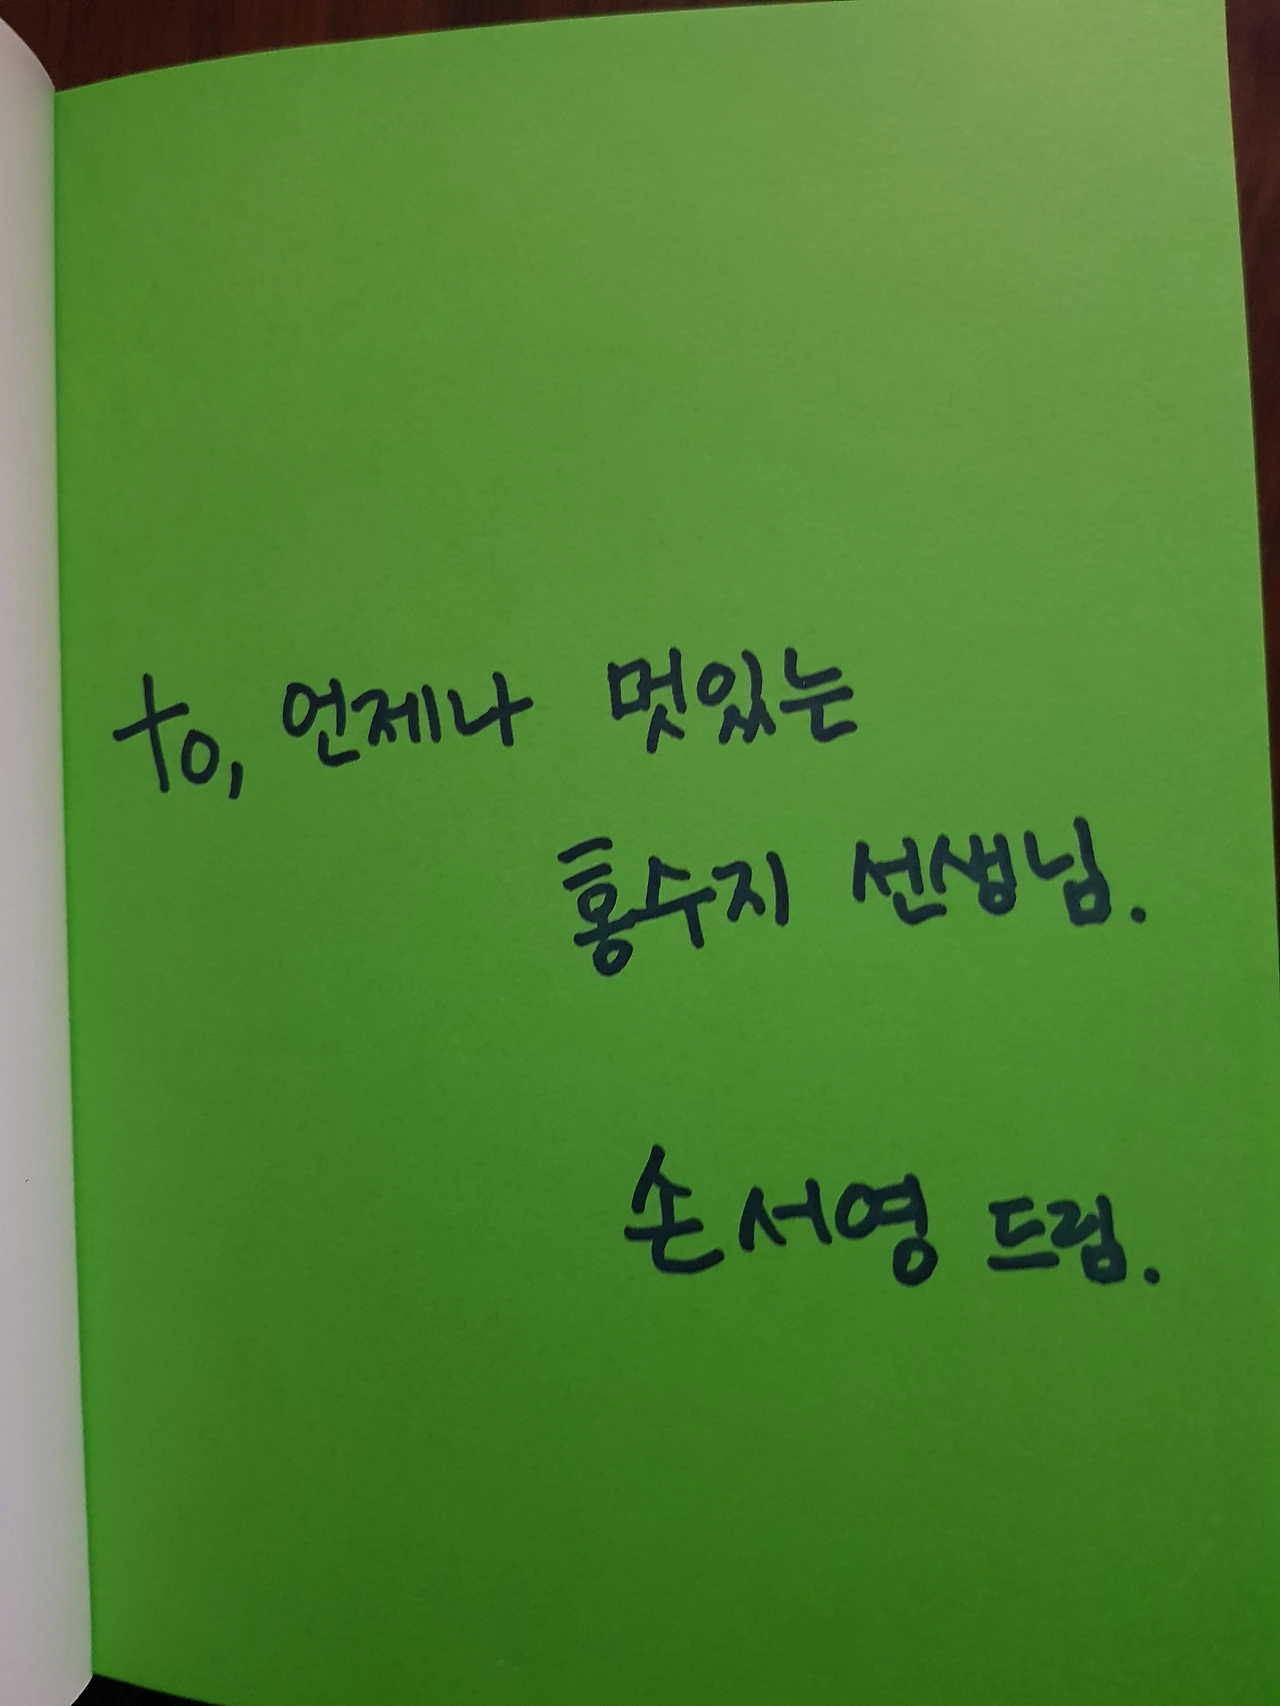 to, 언제나 멋있는
홍수지 선생님.
손서영 드림.